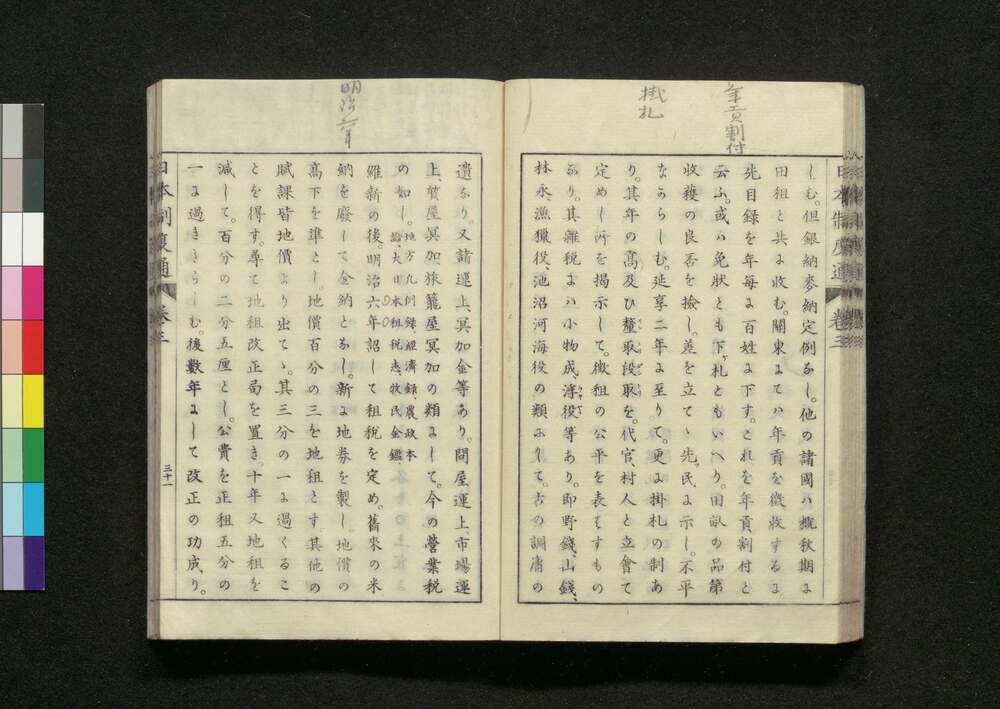 年貢割付
掛札
しむ。但銀納麥納定例なし。他の諸國ハ概秋期よ
田租と共よ收む。關東よてハ年貢を徴收するよ
先目録を年毎よ百姓よ下す。これを年貢割付と
云ふ。或ハ免狀とも下ヶ札ともいへり。田畝の品第
收穫の良否を撿し。差を立てゝ先民よ示し。不平
なからしむ。延享二年よ至りて。更よ掛札の制あ
り。其年の高及ひ釐取段取を。代官、村人と立會て
定めし所を掲示して。徴租の公平を表はすもの
なり。其雜税よハ小物成、浮役等あり。即野錢、山錢、
林永、漁獵役、池沼河海役の類ふして。古の調庸の
日本制度通 卷三
明治六年
遺なり。又諸運上、冥加金等あり。問屋運上、市場運
上、質屋冥加、旅籠屋冥加の類よして。今の營業税
の如し。地方凡例録、經濟録、農政本論、大日本租税志、牧民金鑑、
維新の後。明治六年詔して租税を定め。舊來の米
納を廢して金納となし。新よ地券を製し。地價の
高下を準とし。地價百分の三を地租とす其他の
賦課皆地價より出てゝ。其三分の一よ過くるこ
とを得す。尋て地租改正局を置き。十年又地租を
減して。百分の二分五厘とし。公費を正租五分の
一よ過きさらしむ。後數年よして改正の功成り。
日本制度通 卷三
三十一